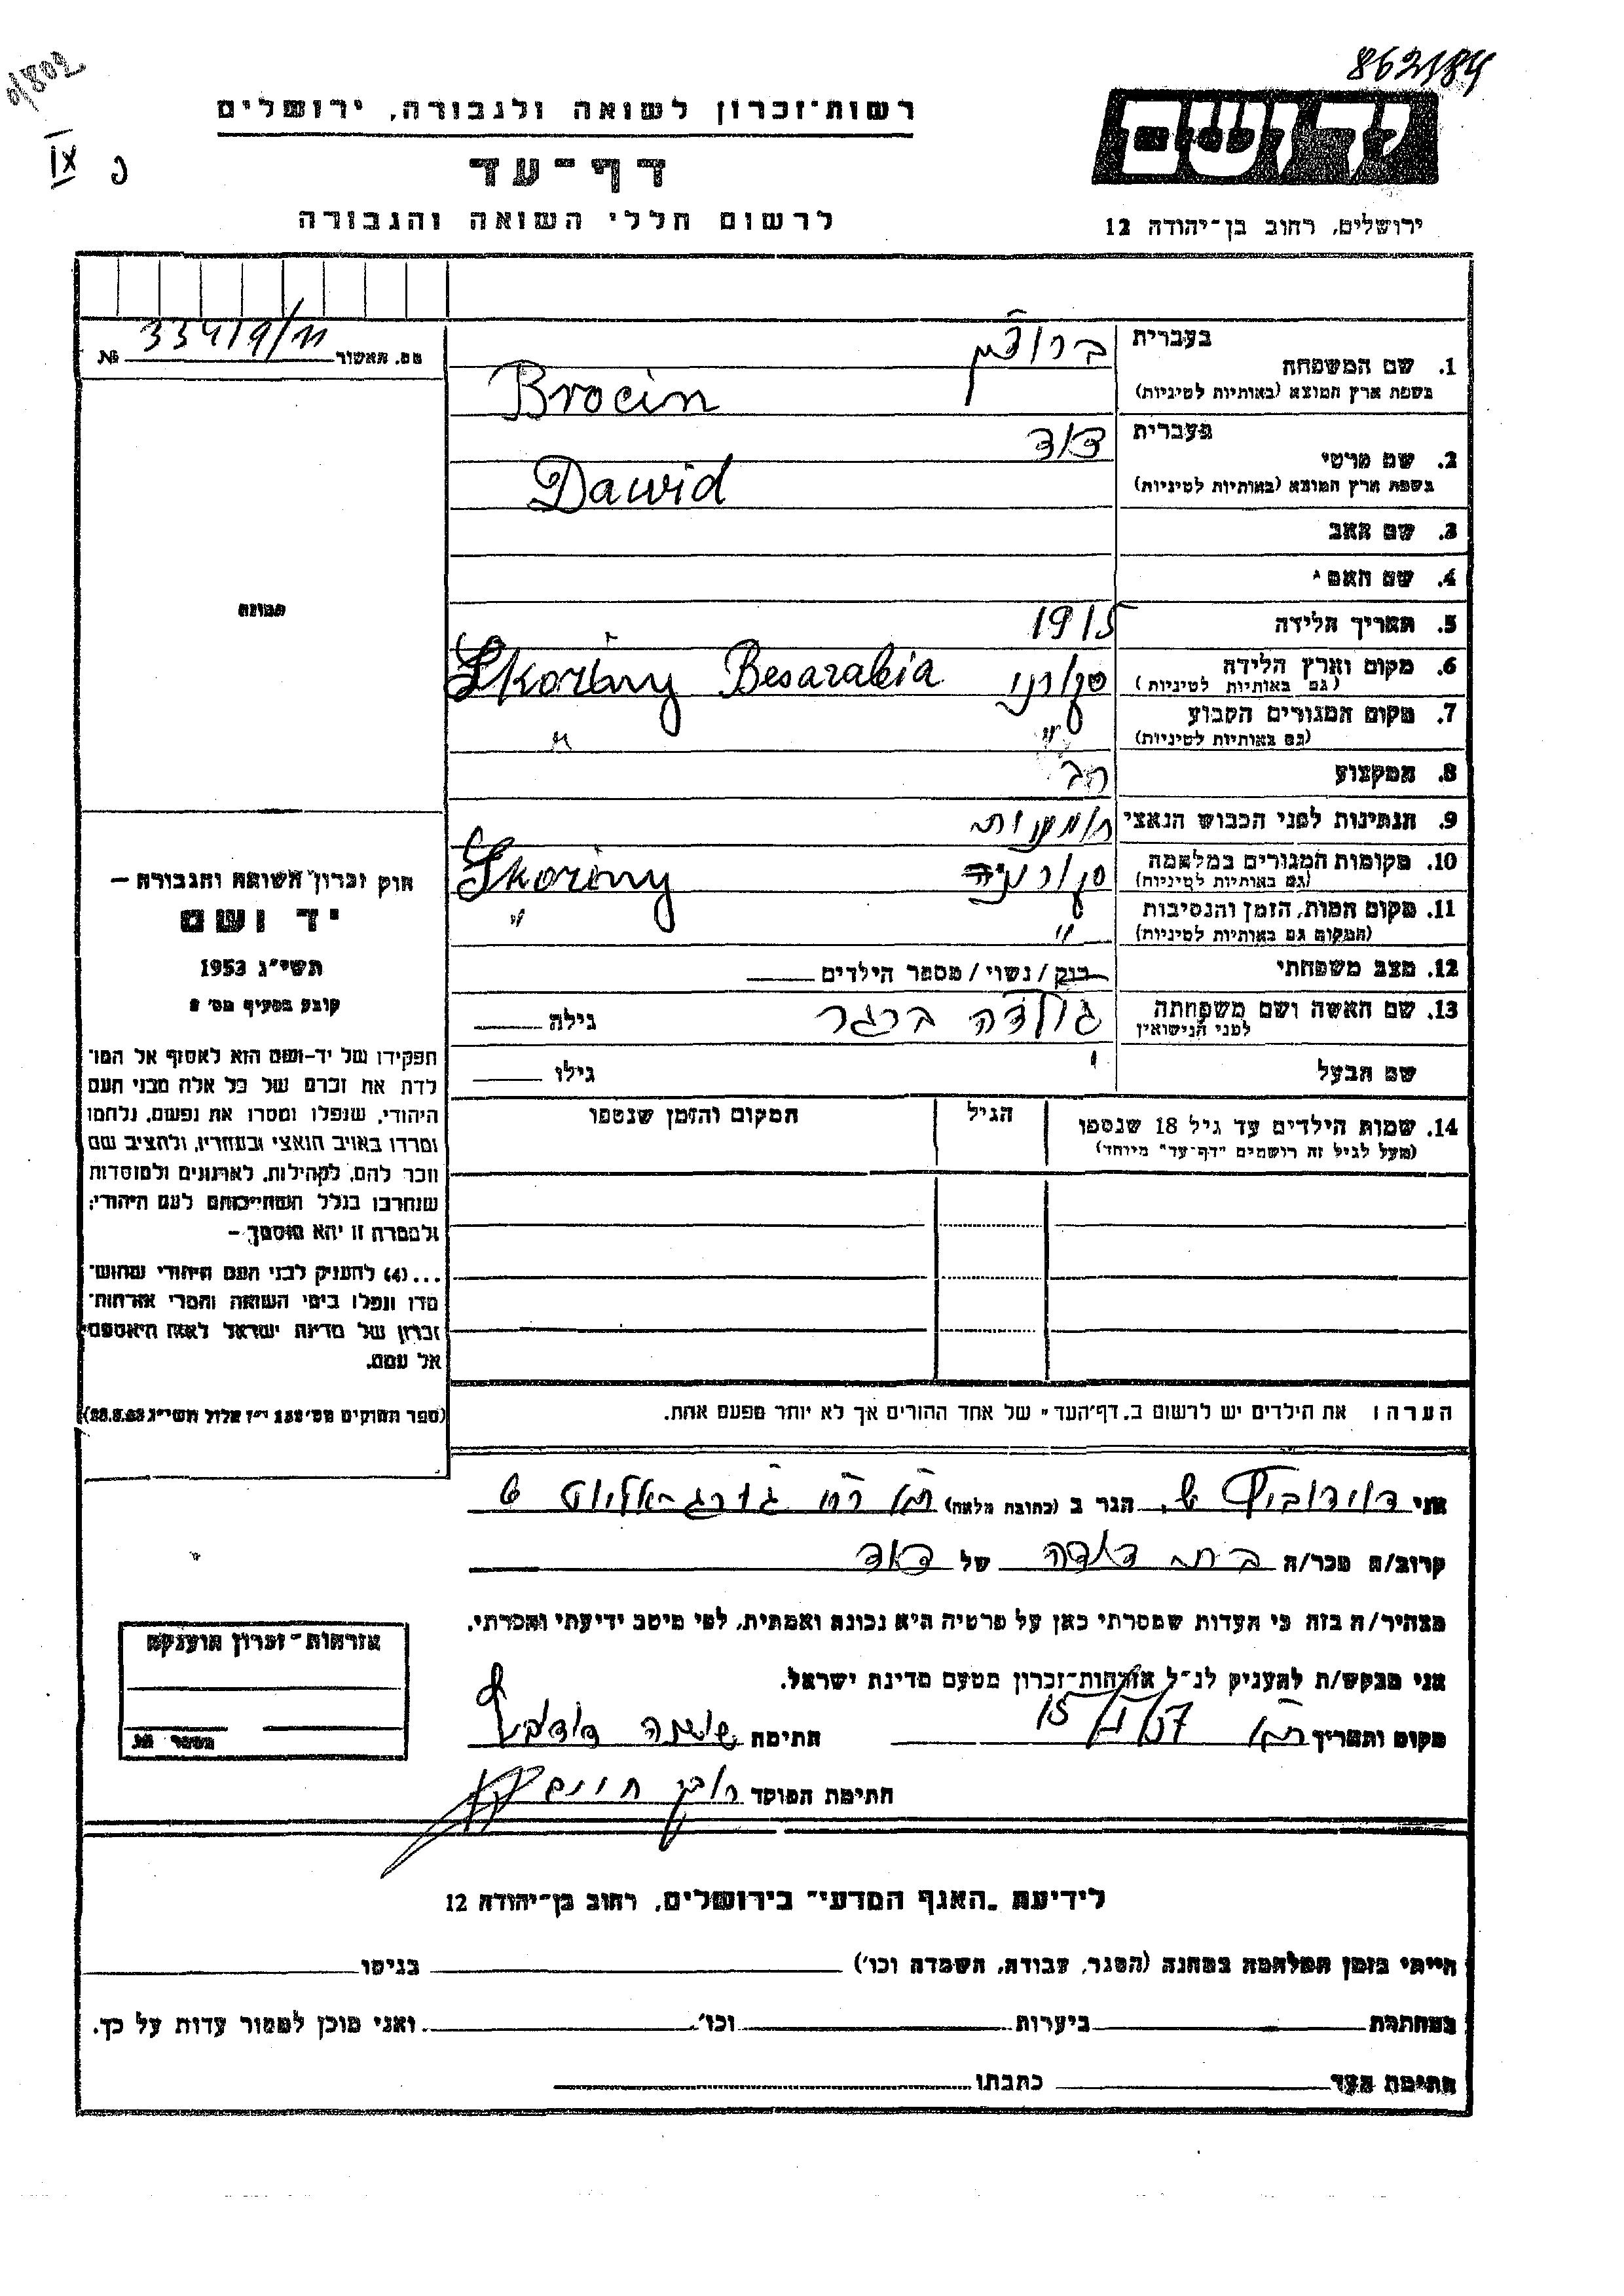 862184
0/802
IX
יד ושם
רשות־זכרון לשואה ולגבורה, ירושלים
דף־עד
לרשום חללי השואה והגבורה
ירושלים, רחוב בן־יהודה 12
מס. האשור № 33419/11
תמונה
1. שם המשפחה
בעברית
בשפת ארץ המוצא (באותיות לטיניות)
Brocin
2. שם פרטי
בעברית דוד
בשפת ארץ המוצא (באותיות לטיניות)
Dawid
3. שם האב
4. שם האם
5. תאריך הלידה 1915
6. מקום וארץ הלידה
(גם באותיות לטיניות)
Skoriny Besarabia
7. מקום המגורים הקבוע " "
(גם באותיות לטיניות)
8. המקצוע רב
9. הנתינות לפני הכבוש הנאצי
10. מקומות המגורים במלחמה
(גם באותיות לטיניות)
Skoriny
11. מקום המות, הזמן והנסיבות " "
(המקום גם באותיות לטיניות)
12. מצב משפחתי רוק / נשוי / מספר הילדים
13. שם האשה ושם משפחתה גולדה ברגר גילה
לפני הנישואין
שם הבעל גילו
14. שמות הילדים עד גיל 18 שנספו הגיל המקום והזמן שנספו
(מעל לגיל זה רושמים "דף־עד" מיוחד)
הערה: את הילדים יש לרשום ב„דף־העד" של אחד ההורים אך לא יותר מפעם אחת.
חוק זכרון השואה והגבורה —
יד ושם
תשי"ג 1953
קובע בסעיף מס' 2
תפקידו של יד־ושם הוא לאסוף אל המו־
לדת את זכרם של כל אלה מבני העם
היהודי, שנפלו ומסרו את נפשם, נלחמו
ומרדו באויב הנאצי ובעוזריו, ולהציב שם
וזכר להם, לקהילות, לארגונים ולמוסדות
שנחרבו בגלל השתייכותם לעם היהודי;
ולמטרה זו יהא מוסמך —
...(4) להעניק לבני העם היהודי שהוש־
מדו ונפלו בימי השואה והמרי אזרחות־
זכרון של מדינת ישראל לאות היאספם
אל עמם.
(ספר החוקים מס' 132 י"ז אלול תשי"ג 28.8.53)
אני דוידוביץ ש. הגר ב (כתובת מלאה)
קרוב/ה מכר/ה בת דודה של דוד
מצהיר/ה בזה כי העדות שמסרתי כאן על פרטיה היא נכונה ואמתית, לפי מיטב ידיעתי והכרתי.
אני מבקש/ת להעניק לנ"ל אזרחות־זכרון מטעם מדינת ישראל.
מקום ותאריך חתימה
חתימת הפוקד
אזרחות־זכרון הוענקה
מספר מס.
לידיעת „האגף המדעי" בירושלים, רחוב בן־יהודה 12
הייתי בזמן המלחמה במחנה (הסגר, עבודה, השמדה וכו') בגיטו
במחתרת ביערות וכו' ואני מוכן למסור עדות על כך.
חתימת העד כתבתו